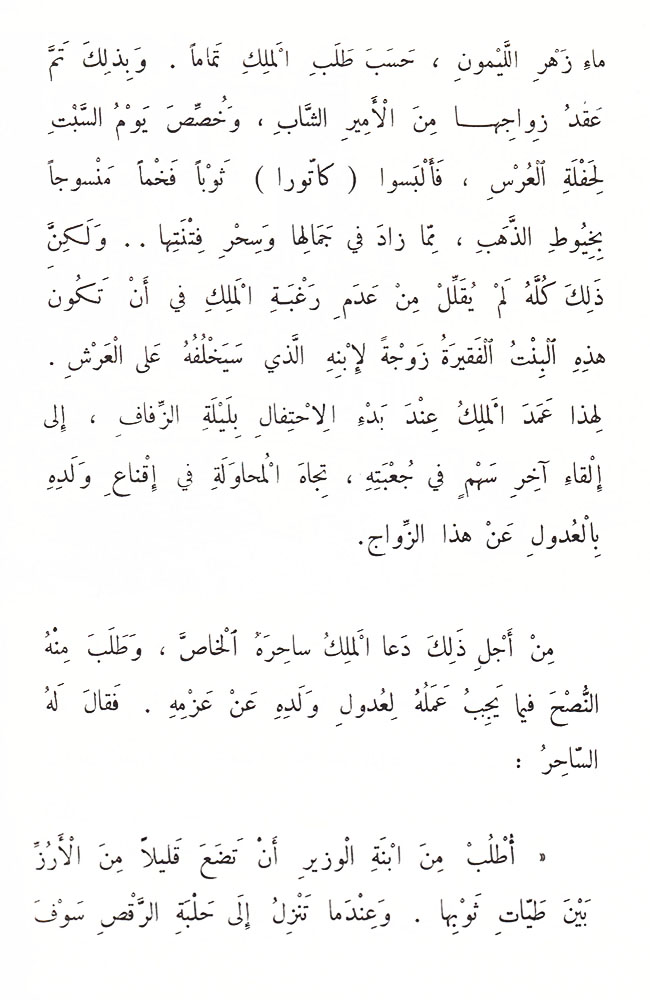 ماءِ زَهْرِ اللَّيْمونِ ، حَسَبَ طَلَبِ الْمَلِكِ تَماماً . وَبِذلِكَ تَمَّ
عَقْدُ زِواجِهـــا مِنَ الْأَميرِ الشَّابِ ، وَخُصِّصَ يَوْمُ السَّبْتِ
لِحَفْلَةِ ٱلْعُرْسِ ، فَأَلْبَسوا ( كاتّورا ) ثَوْباً فَخْماً مَنْسوجاً
بِخِيُوطِ الذَّهَبِ ، مِمّا زادَ في جَمَالِها وَسِحْرِ فِتْنَتِها .. وَلَكِنَّ
ذَلِكَ كُلَّهُ لَمْ يُقَلِّلْ مِنْ عَدَمِ رَغْبَـةِ الْمَلِكِ في أَنْ تَـكُونَ
هذِهِ ٱلْبِنْتُ ٱلْفَقيرَةُ زَوْجةً لِإبْنِهِ الَّذي سَيَخْلُفُهُ عَلى الْعَرْشِ .
لِهذا عَمَدَ الْمَلِكُ عِنْدَ بَدْءِ الِاحْتِفالِ بِلَيْلَةِ الزِّفافِ ، إلى
إِلْقاءِ آخِرِ سَهْمٍ في جُعْبَتِهِ ، تِجاهَ الْمُحاوَلَةِ في إِقْناعِ وَلَدِهِ
بِالْعُدولِ عَنْ هذا الزّواجِ.
مِنْ أَجْلِ ذَلِكَ دَعا الْمَلِكُ ساحِرَهُ ٱلْخاصَّ ، وَطَلَبَ مِنْهُ
النُّصْحَ فيما يَجِبُ عَمَلُهُ لِعُدولِ وَلَدِهِ عَنْ عَزْمِهِ . فَقالَ لَهُ
السّاحِرُ :
« أُطْلُبْ مِنَ ابْنَةِ الْوزيرِ أَنْ تَضَعَ قَليلاً مِنَ الْأَرُزِّ
بَيْنَ طَيّاتِ ثَوْبِها . وَعِنْدَما تَنْزِلُ إِلَى حَلْبَةِ الرَّقْصِ سَوْفَ